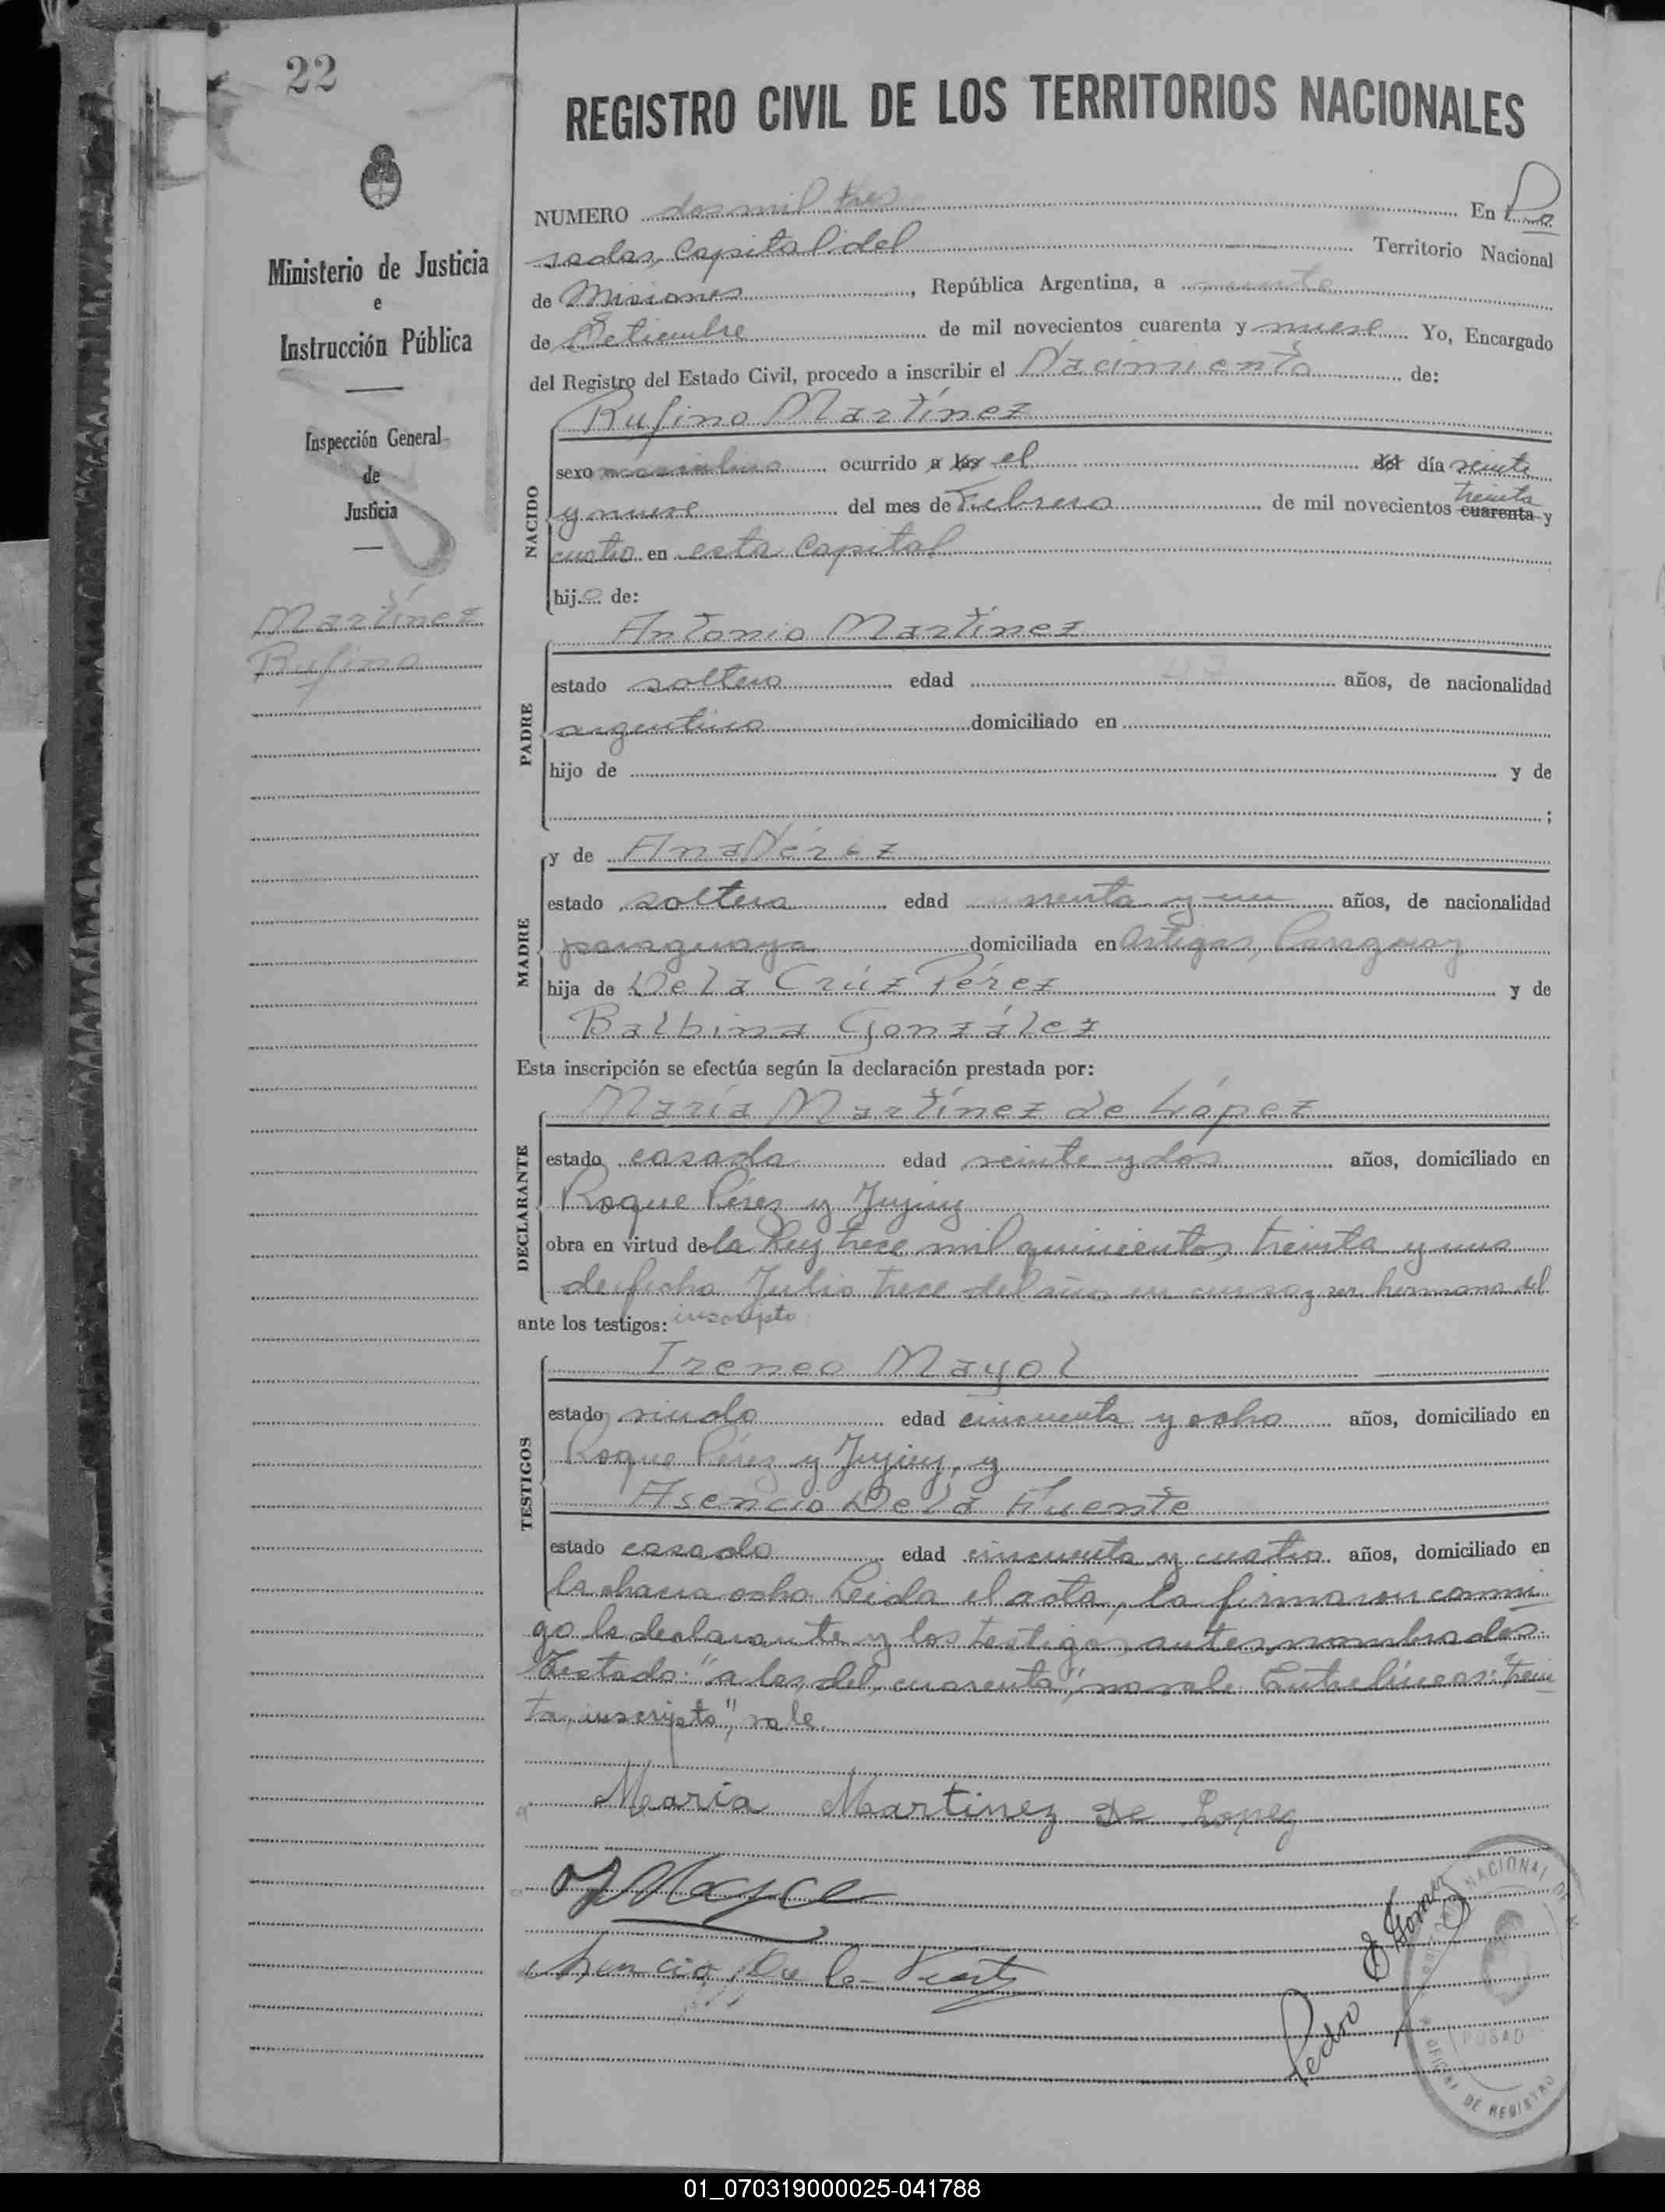 22
REGISTRO CIVIL DE LOS TERRITORIOS NACIONALES
Ministerio de Justicia
e
Instrucción Pública
Inspección General
de
Justicia
Martínez
Rufino
NUMERO dos mil tres En Po
sadas, Capital del Territorio Nacional
de Misiones, República Argentina, a
de Setiembre de mil novecientos cuarenta y nueve Yo, Encargado
del Registro del Estado Civil, procedo a inscribir el Nacimiento de:
Rufino Martínez
NACIDO
sexo masculino ocurrido a las el del día veinte
treinta
y nueve del mes de Febrero de mil novecientos cuarenta y
cuatro en esta Capital
hijo de:
Antonio Martínez
PADRE
estado soltero edad años, de nacionalidad
argentino domiciliado en
hijo de y de
;
MADRE
y de Ana Pérez
estado soltera edad y un años, de nacionalidad
paraguaya domiciliada en Artigas, Paraguay
hija de De La Crúz Pérez y de
Balbina González
Esta inscripción se efectúa según la declaración prestada por:
María Martínez de López
DECLARANTE
estado casada edad veinte y dos años, domiciliado en
Roque Pérez y Jujuy
obra en virtud de la Ley trece mil quinientos treinta y uno
de fecha Julio trece del año en curso y ser hermana del
ante los testigos: inscripto
Ireneo Mayol
TESTIGOS
estado viudo edad cincuenta y ocho años, domiciliado en
Roque Pérez y Jujuy, y
Asencio De La Fuente
estado casado edad cincuenta y cuatro años, domiciliado en
la chacra ocho. Leida el acta, la firmaron conmi
go la declarante y los testigos antes nombrados.
Testado: "a las, del, cuarenta", no vale. Entrelíneas: "trein
ta, inscripto", vale.
Maria Martinez de Lopez
Asencio De la Fuente
Pedro J Gomez
NACIONAL DE
POSAD
OFICINA DE REGISTRO
01_070319000025-041788